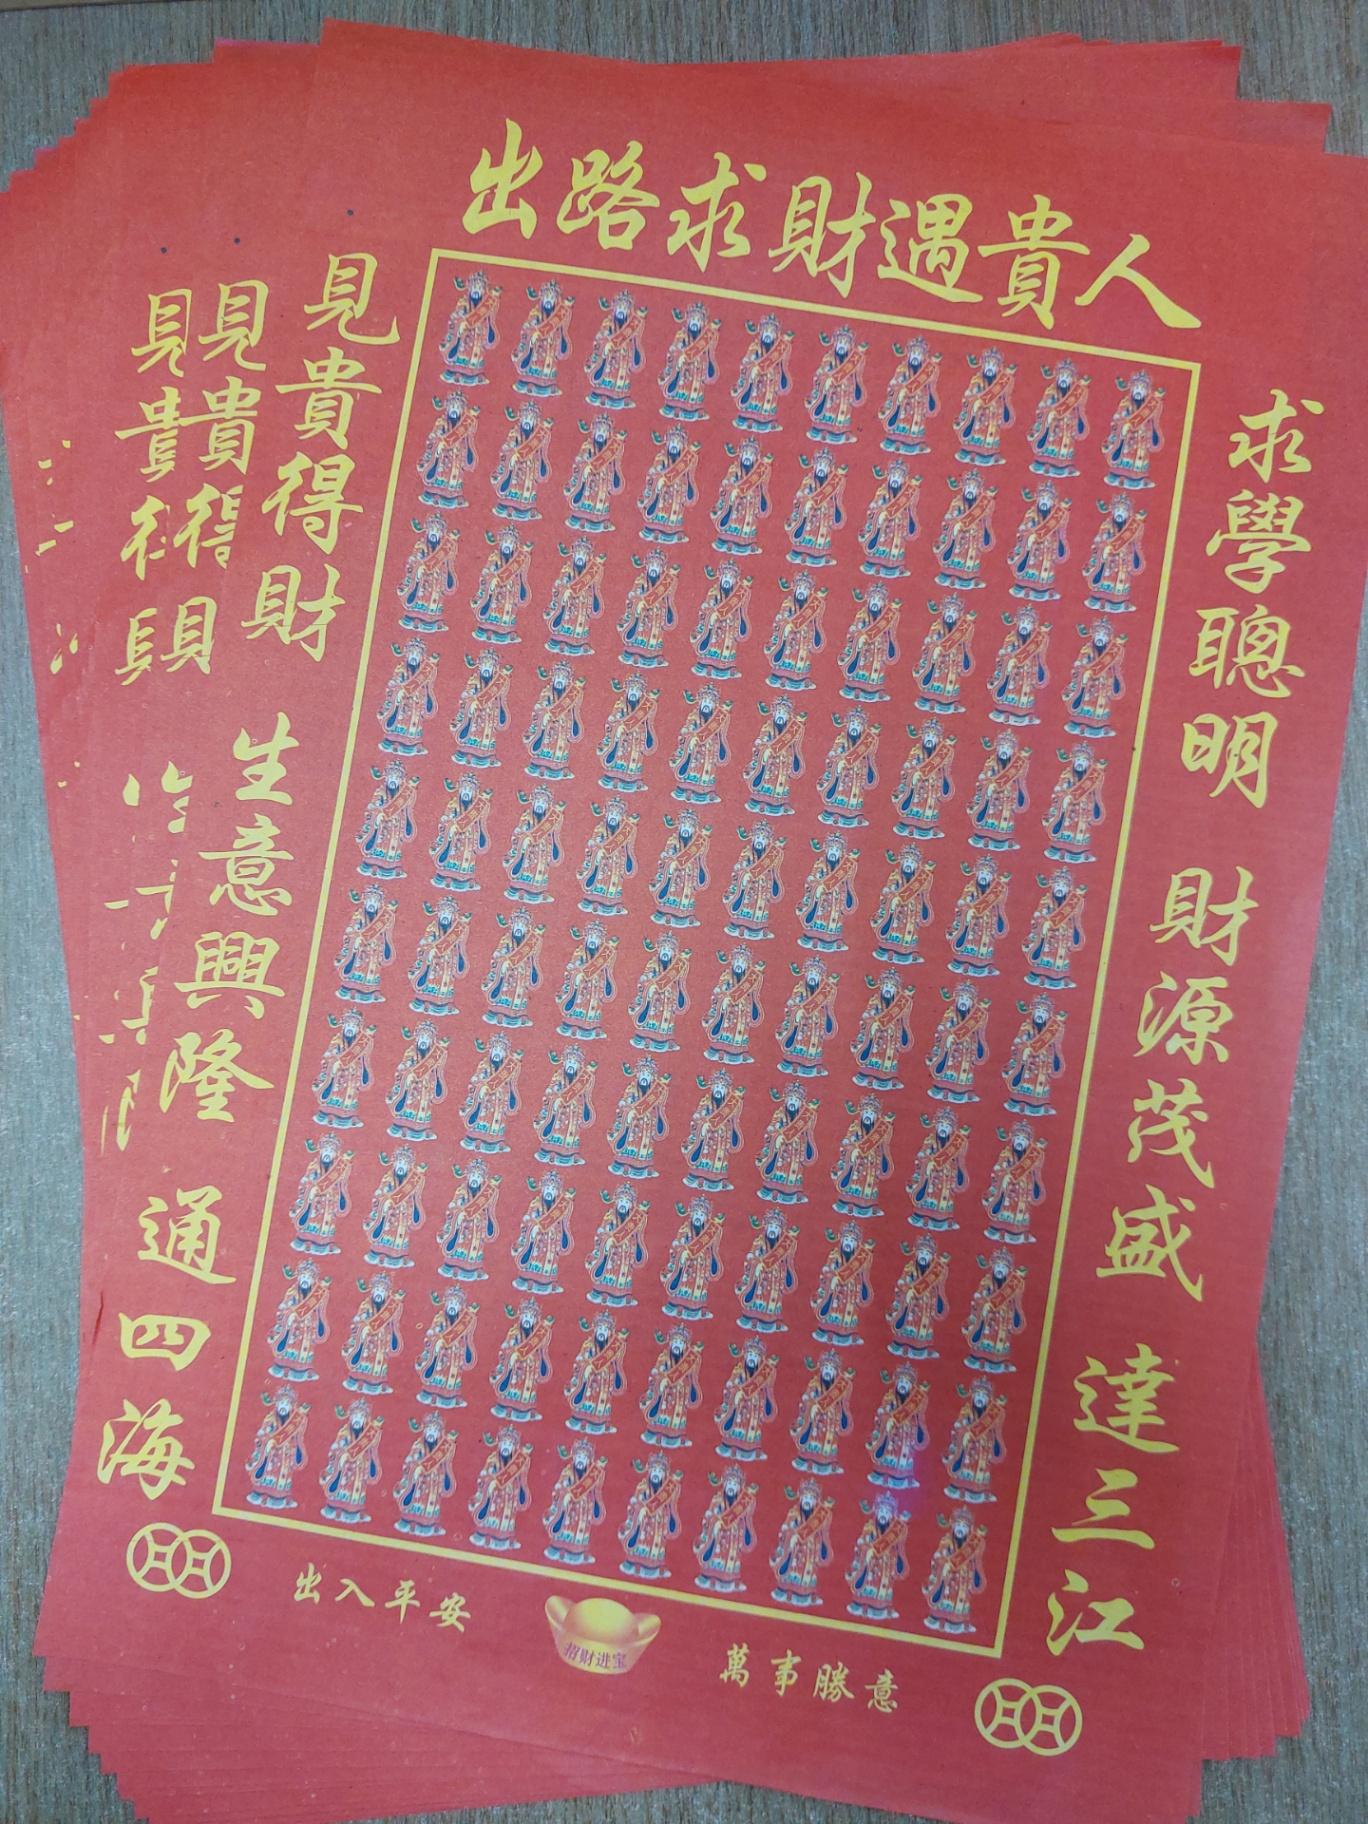 出路求財遇貴人
求學聰明 財源茂盛 達三江
見貴得財 生意興隆 通四海
見貴得
見貴
出入平安
招财进宝
萬事勝意